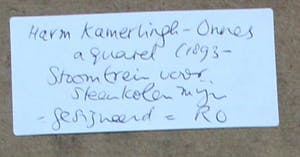 Harm Kamerlingh-Onnes
aquarel (1893-
Stoomtrein voor
Steenkolenmijn
- gesigneerd = RO